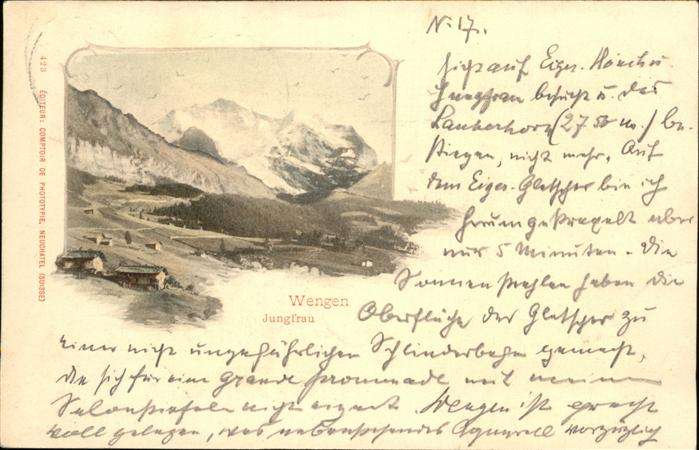 No 17.
auf Eiger. Mönch u.
Jungfrau u. das
Lauberhorn (2750 m.) be-
stiegen, nicht mehr. Auf
dem Eiger-Gletscher bin ich
herumgekraxelt aber
nur 5 Minuten. Die
Sonnenstrahlen haben die
Oberfläche der Gletscher zu
einer nicht ungefährlichen Schlinderbahn gemacht,
die sich für eine Grande promenade mit meinen
Salonstiefeln nicht eignet. Wengen ist pracht
voll gelegen, was nebenstehendes Aquarell vorzüglich
Wengen
Jungfrau
423 ÉDITEUR: COMPTOIR DE PHOTOTYPIE, NEUCHATEL (SUISSE)